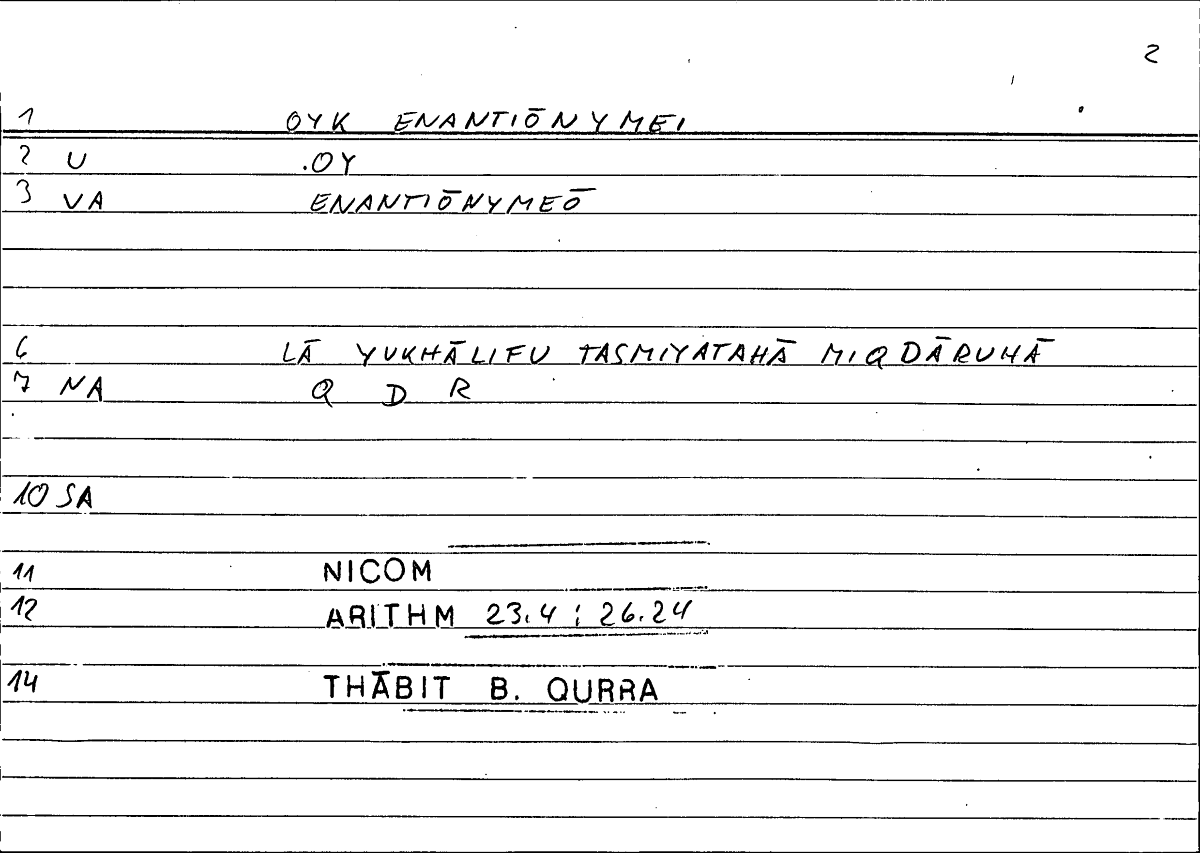 2
1 OYK ENANTIŌNYMEI
2 U .OY
3 VA ENANTIŌNYMEŌ
6 LĀ YUKHĀLIFU TASMIYATAHĀ MIQDĀRUHĀ
7 NA Q D R
10 SA
11 NICOM
12 ARITHM 23.4 ; 26.24
14 THĀBIT B. QURRA